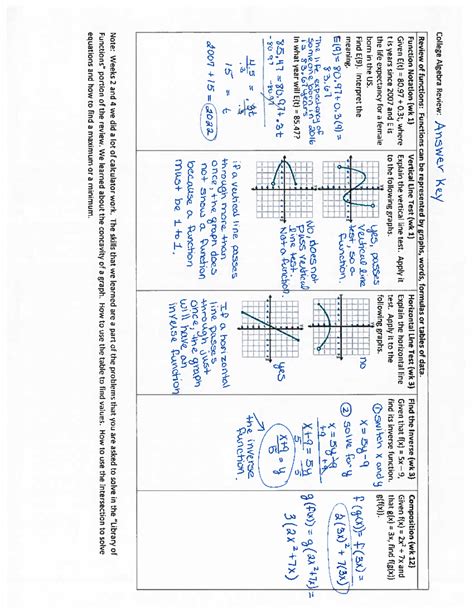 College Algebra Review: Answer Key
Review of functions: Functions can be represented by graphs, words, formulas or tables of data.
Function Notation (wk 1)
Given E(t) = 80.97 + 0.3t, where
t is years since 2007 and E is
the life expectancy for a female
born in the US.
Find E(9). Interpret the
meaning.
E(9) = 80.97 + 0.3(9) =
83.67
The life expectancy of
someone born in 2016
is 83.67 years
In what year will E(t) = 85.47?
85.47 = 80.97 + .3t
-80.97 -80.97
4.5 = .3t
.3 .3
15 = t
2007 + 15 = 2022
Vertical Line Test (wk 1)
Explain the vertical line test. Apply it
to the following graphs.
yes, passes
vertical line
test, so a
function
No does not
pass vertical
line test.
Not a function.
if a vertical line passes
through more than
once, the graph does
not show a function
because a function
must be 1 to 1.
Horizontal Line Test (wk 3)
Explain the horizontal line
test. Apply it to the
following graphs.
no
yes
If a horizontal
line passes
through just
once, the graph
will have an
inverse function
Find the Inverse (wk 3)
Given that f(x) = 5x – 9,
find its inverse function.
① switch x and y
x = 5y - 9
② solve for y
x = 5y - 9
+9 +9
x+9 = 5y
5 5
x+9 = y
5
the inverse
function.
Composition (wk 12)
Given f(x) = 2x² + 7x and
that g(x) = 3x, find f(g(x))
g(f(x)).
f(g(x)) = f(3x) =
2(3x)² + 7(3x)
g(f(x)) = g(2x²+7x) =
3(2x²+7x)
Note: Weeks 2 and 4 we did a lot of calculator work. The skills that we learned are a part of the problems that you are asked to solve in the "Library of
Functions" portion of the review. We learned about the concavity of a graph. How to use the table to find values. How to use the intersection to solve
equations and how to find a maximum or a minimum.